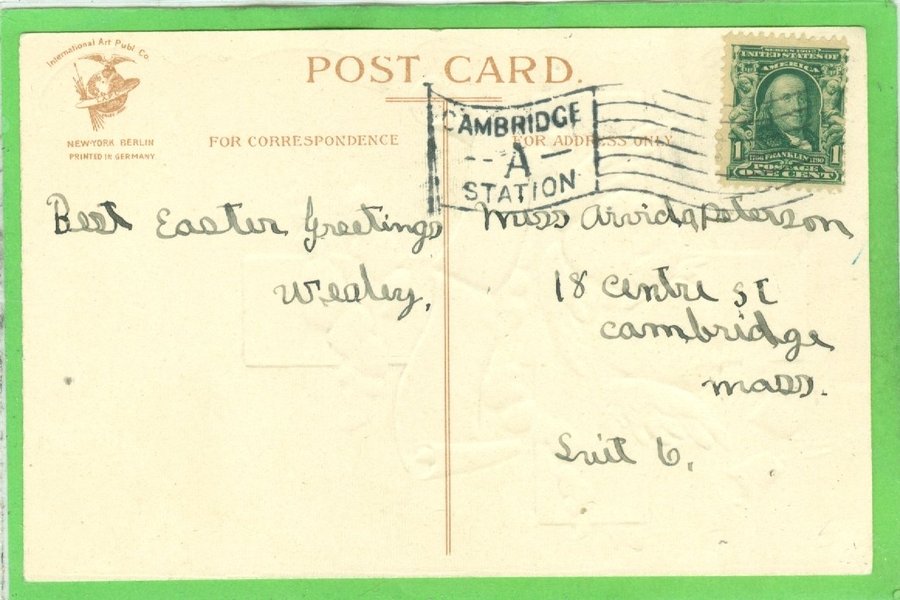 International Art Publ. Co.
NEW-YORK BERLIN
PRINTED IN GERMANY
POST CARD.
FOR CORRESPONDENCE
FOR ADDRESS ONLY
CAMBRIDGE
A
STATION
SERIES 1902
UNITED STATES OF
AMERICA
1 1
FRANKLIN
POSTAGE
ONE CENT
Best Easter Greetings
Wesley.
Miss Arvida Peterson
18 Centre St
Cambridge
Mass.
Suit 6.